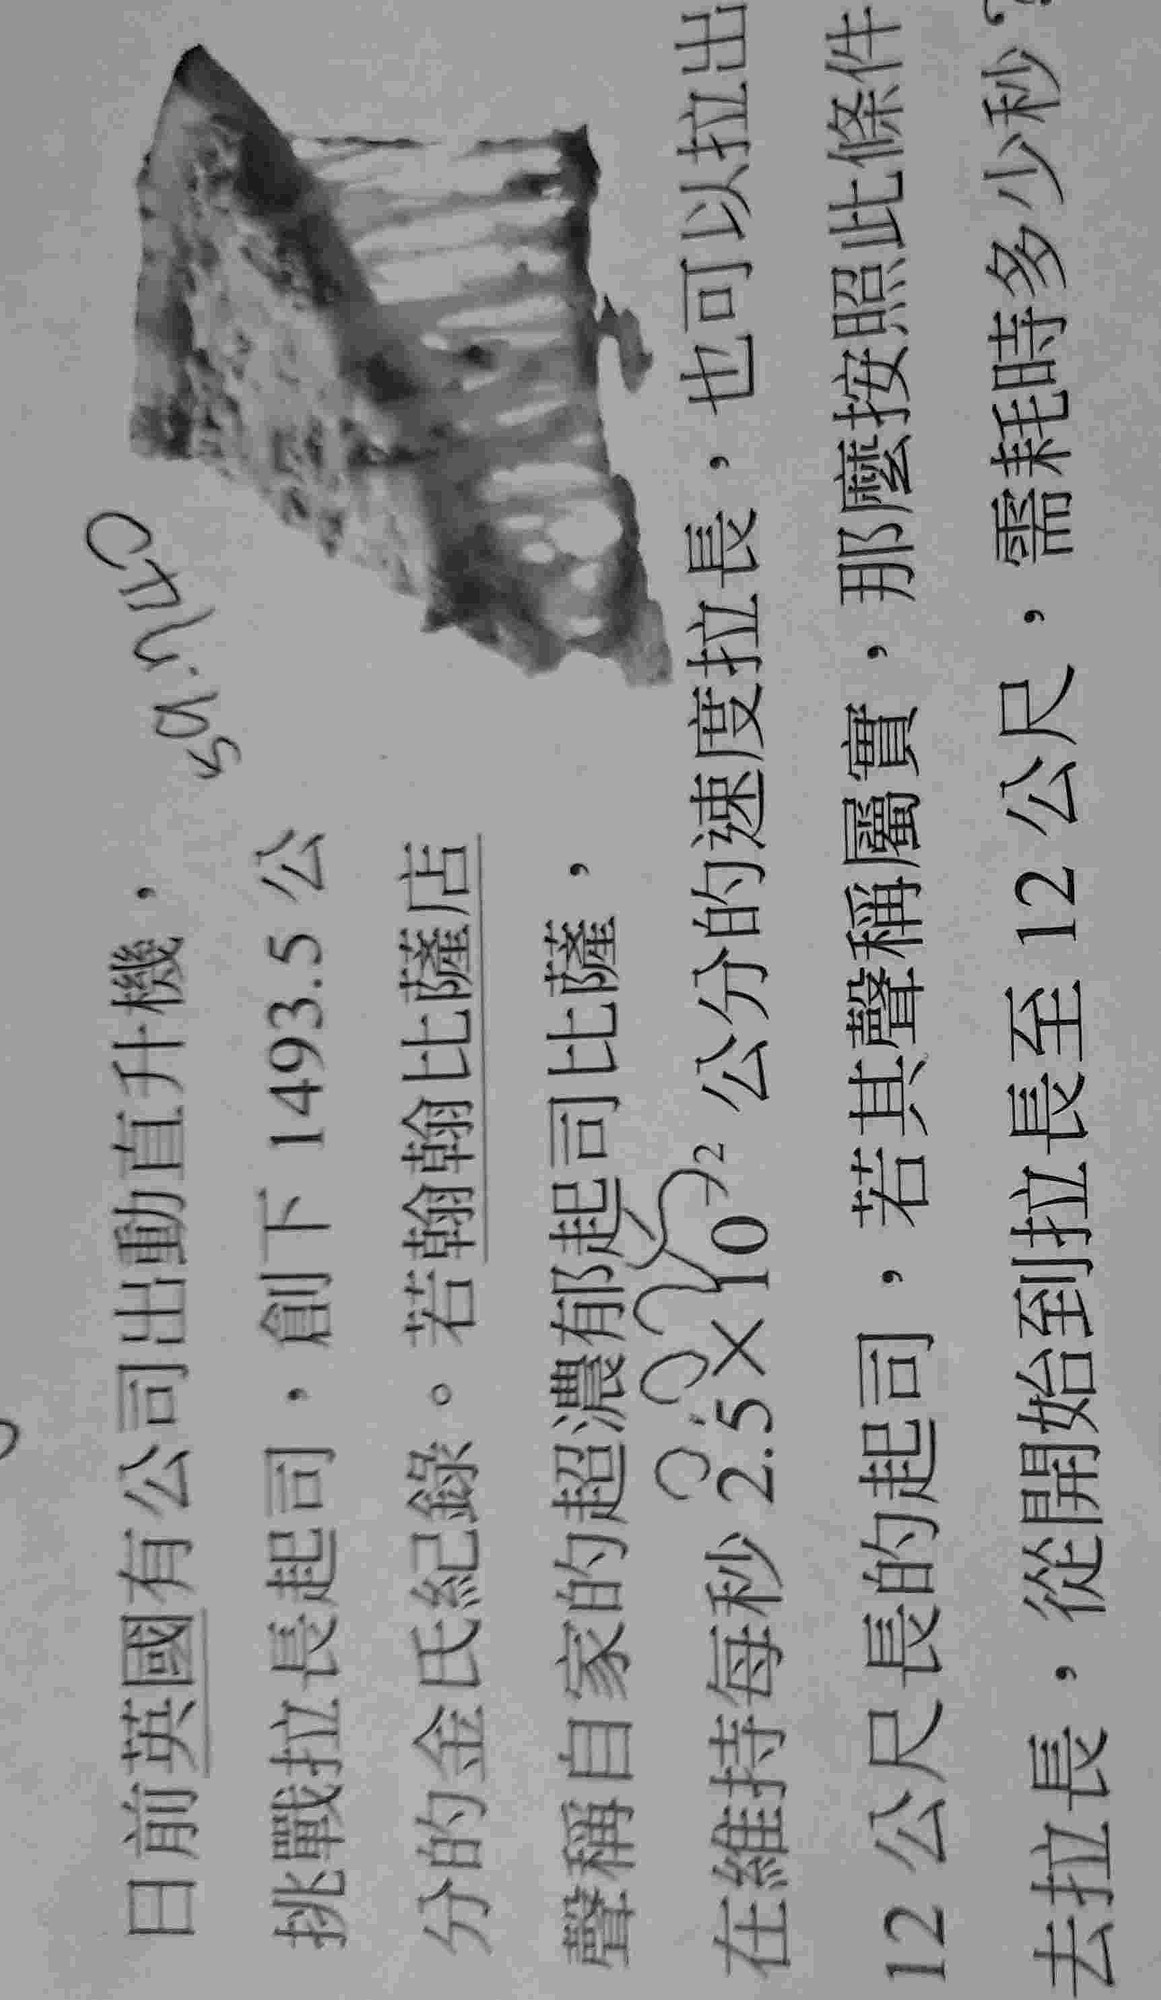 日前英國有公司出動直升機，
挑戰拉長起司，創下 1493.5 公
分的金氏紀錄。若翰翰比薩店
聲稱自家的超濃郁起司比薩，
在維持每秒 2.5×10⁻² 公分的速度拉長，也可以拉出
12 公尺長的起司，若其聲稱屬實，那麼按照此條件
去拉長，從開始到拉長至 12 公尺，需耗時多少秒？